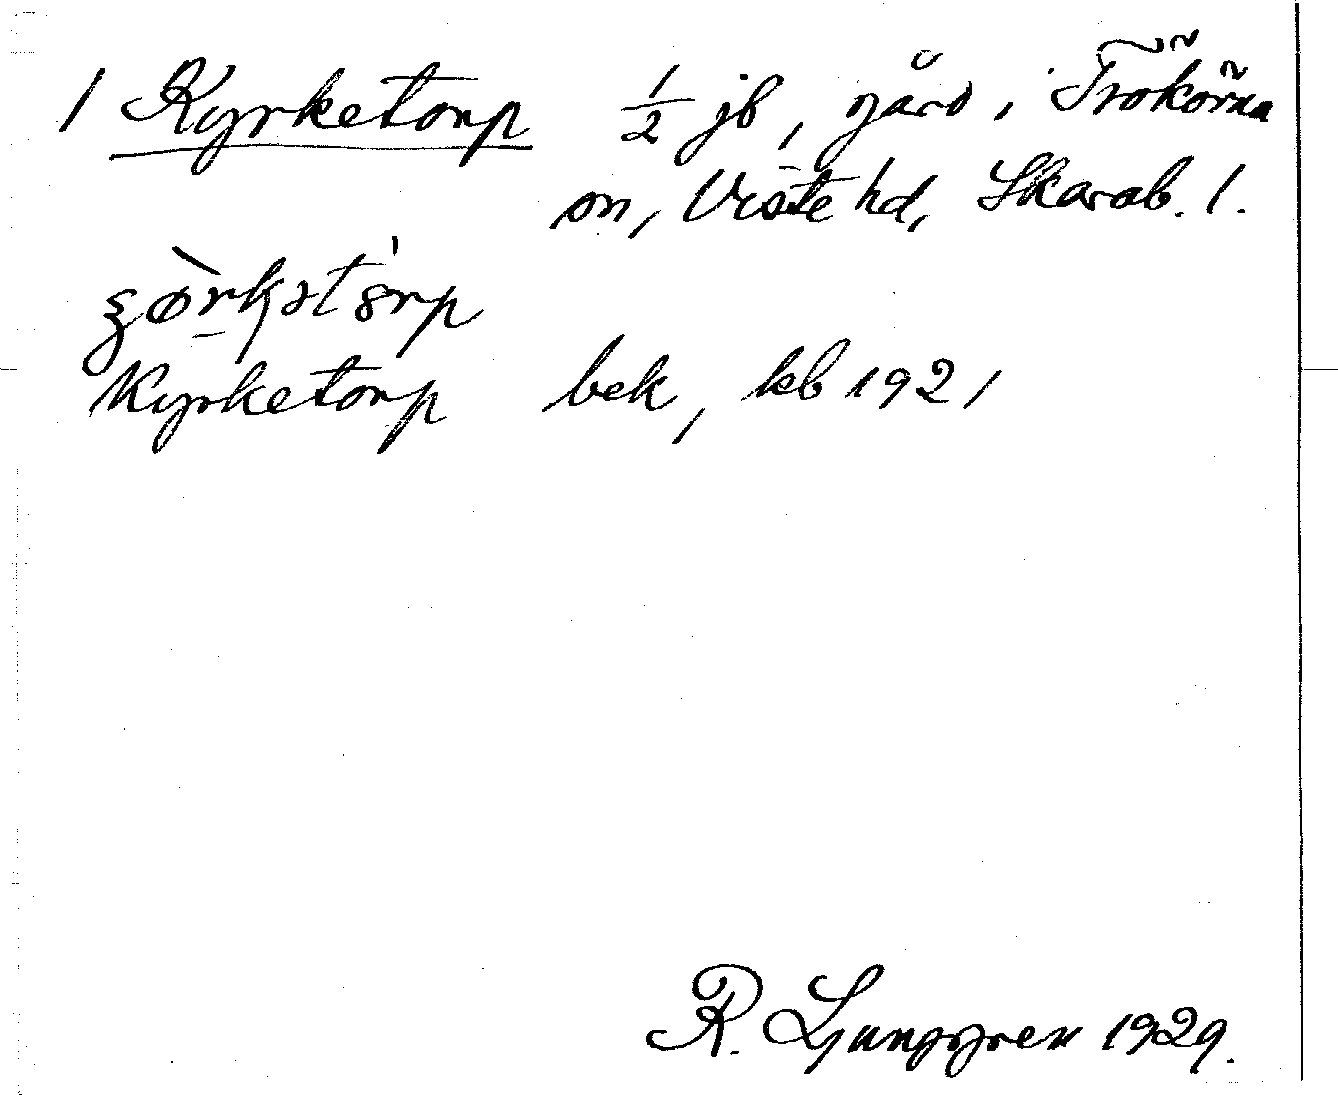 1 Kyrketorp 1/2 jb, gård i Trökörna
sn, Viste hd, Skarab. l.
Kyrketorp bek, kb 1921
R. Ljunggren 1929.